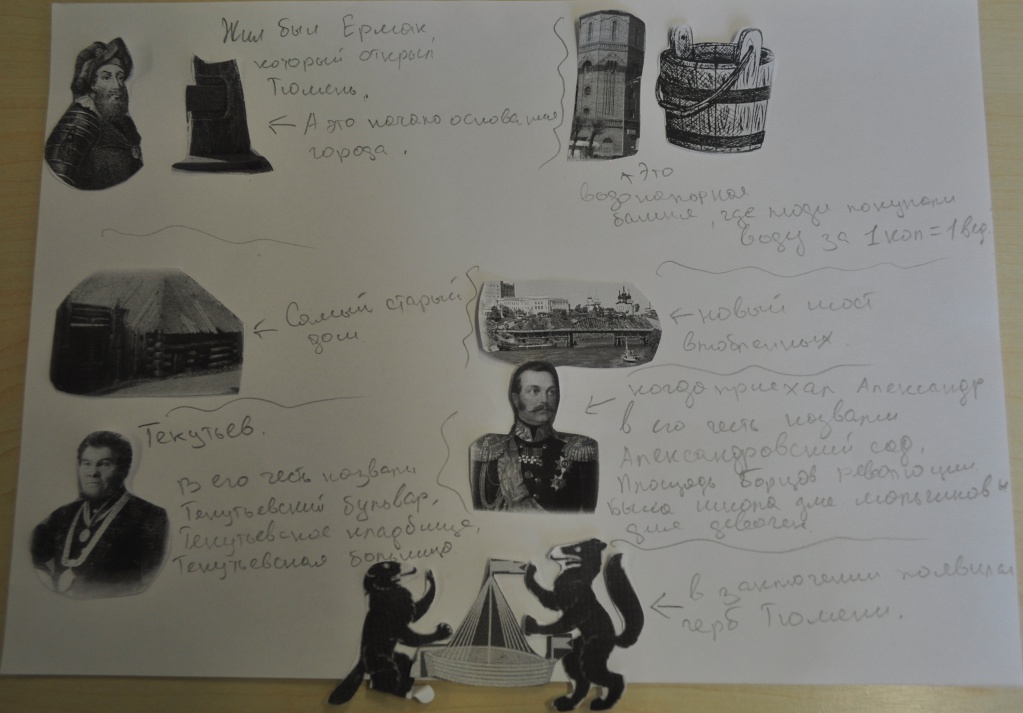 Жил был Ермак,
который открыл
Тюмень.
← А это начало основания
города.
Это
водонапорная
башня, где люди покупали
воду за 1 коп = 1 вед.
← Самый старый
дом
← новый мост
влюбленных.
Текутьев.
В его честь назвали
Текутьевский бульвар,
Текутьевское кладбище,
Текутьевская больница
← когда приехал Александр
в его честь назвали
Александровский сад,
Площадь Борцов революции.
была школа для мальчиков и
для девочек
← в заключении появился
герб Тюмени.